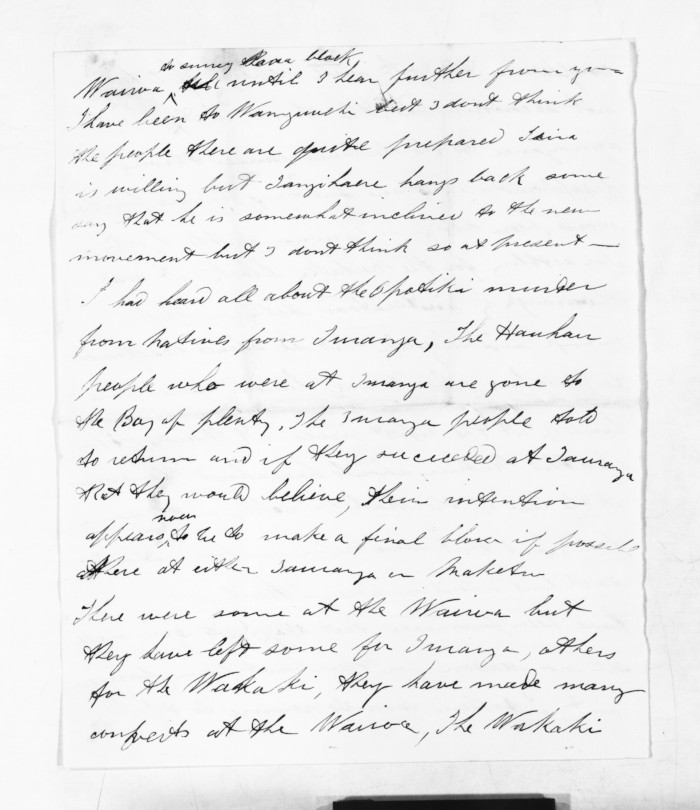 to survey block
Wairoa until I hear further from you
I have been to Wanganui but I dont think
the people there are quite prepared
is willing but Tangihaere hangs back some
say that he is somewhat inclined to the new
movement but I dont think so at present —
I had heard all about the Opotiki murder
from Natives from Turanga, The Hauhau
people who were at Turanga are gone to
the Bay of plenty, The Turanga people told
to return and if they succeeded at Tauranga
that they would believe, their intention
now
appears to be to make a final blow if possible
there at either Tauranga or Maketu
There were some at the Wairoa but
they have left some for Turanga, others
for the Wakaki, they have made many
converts at the Wairoa, The Wakaki